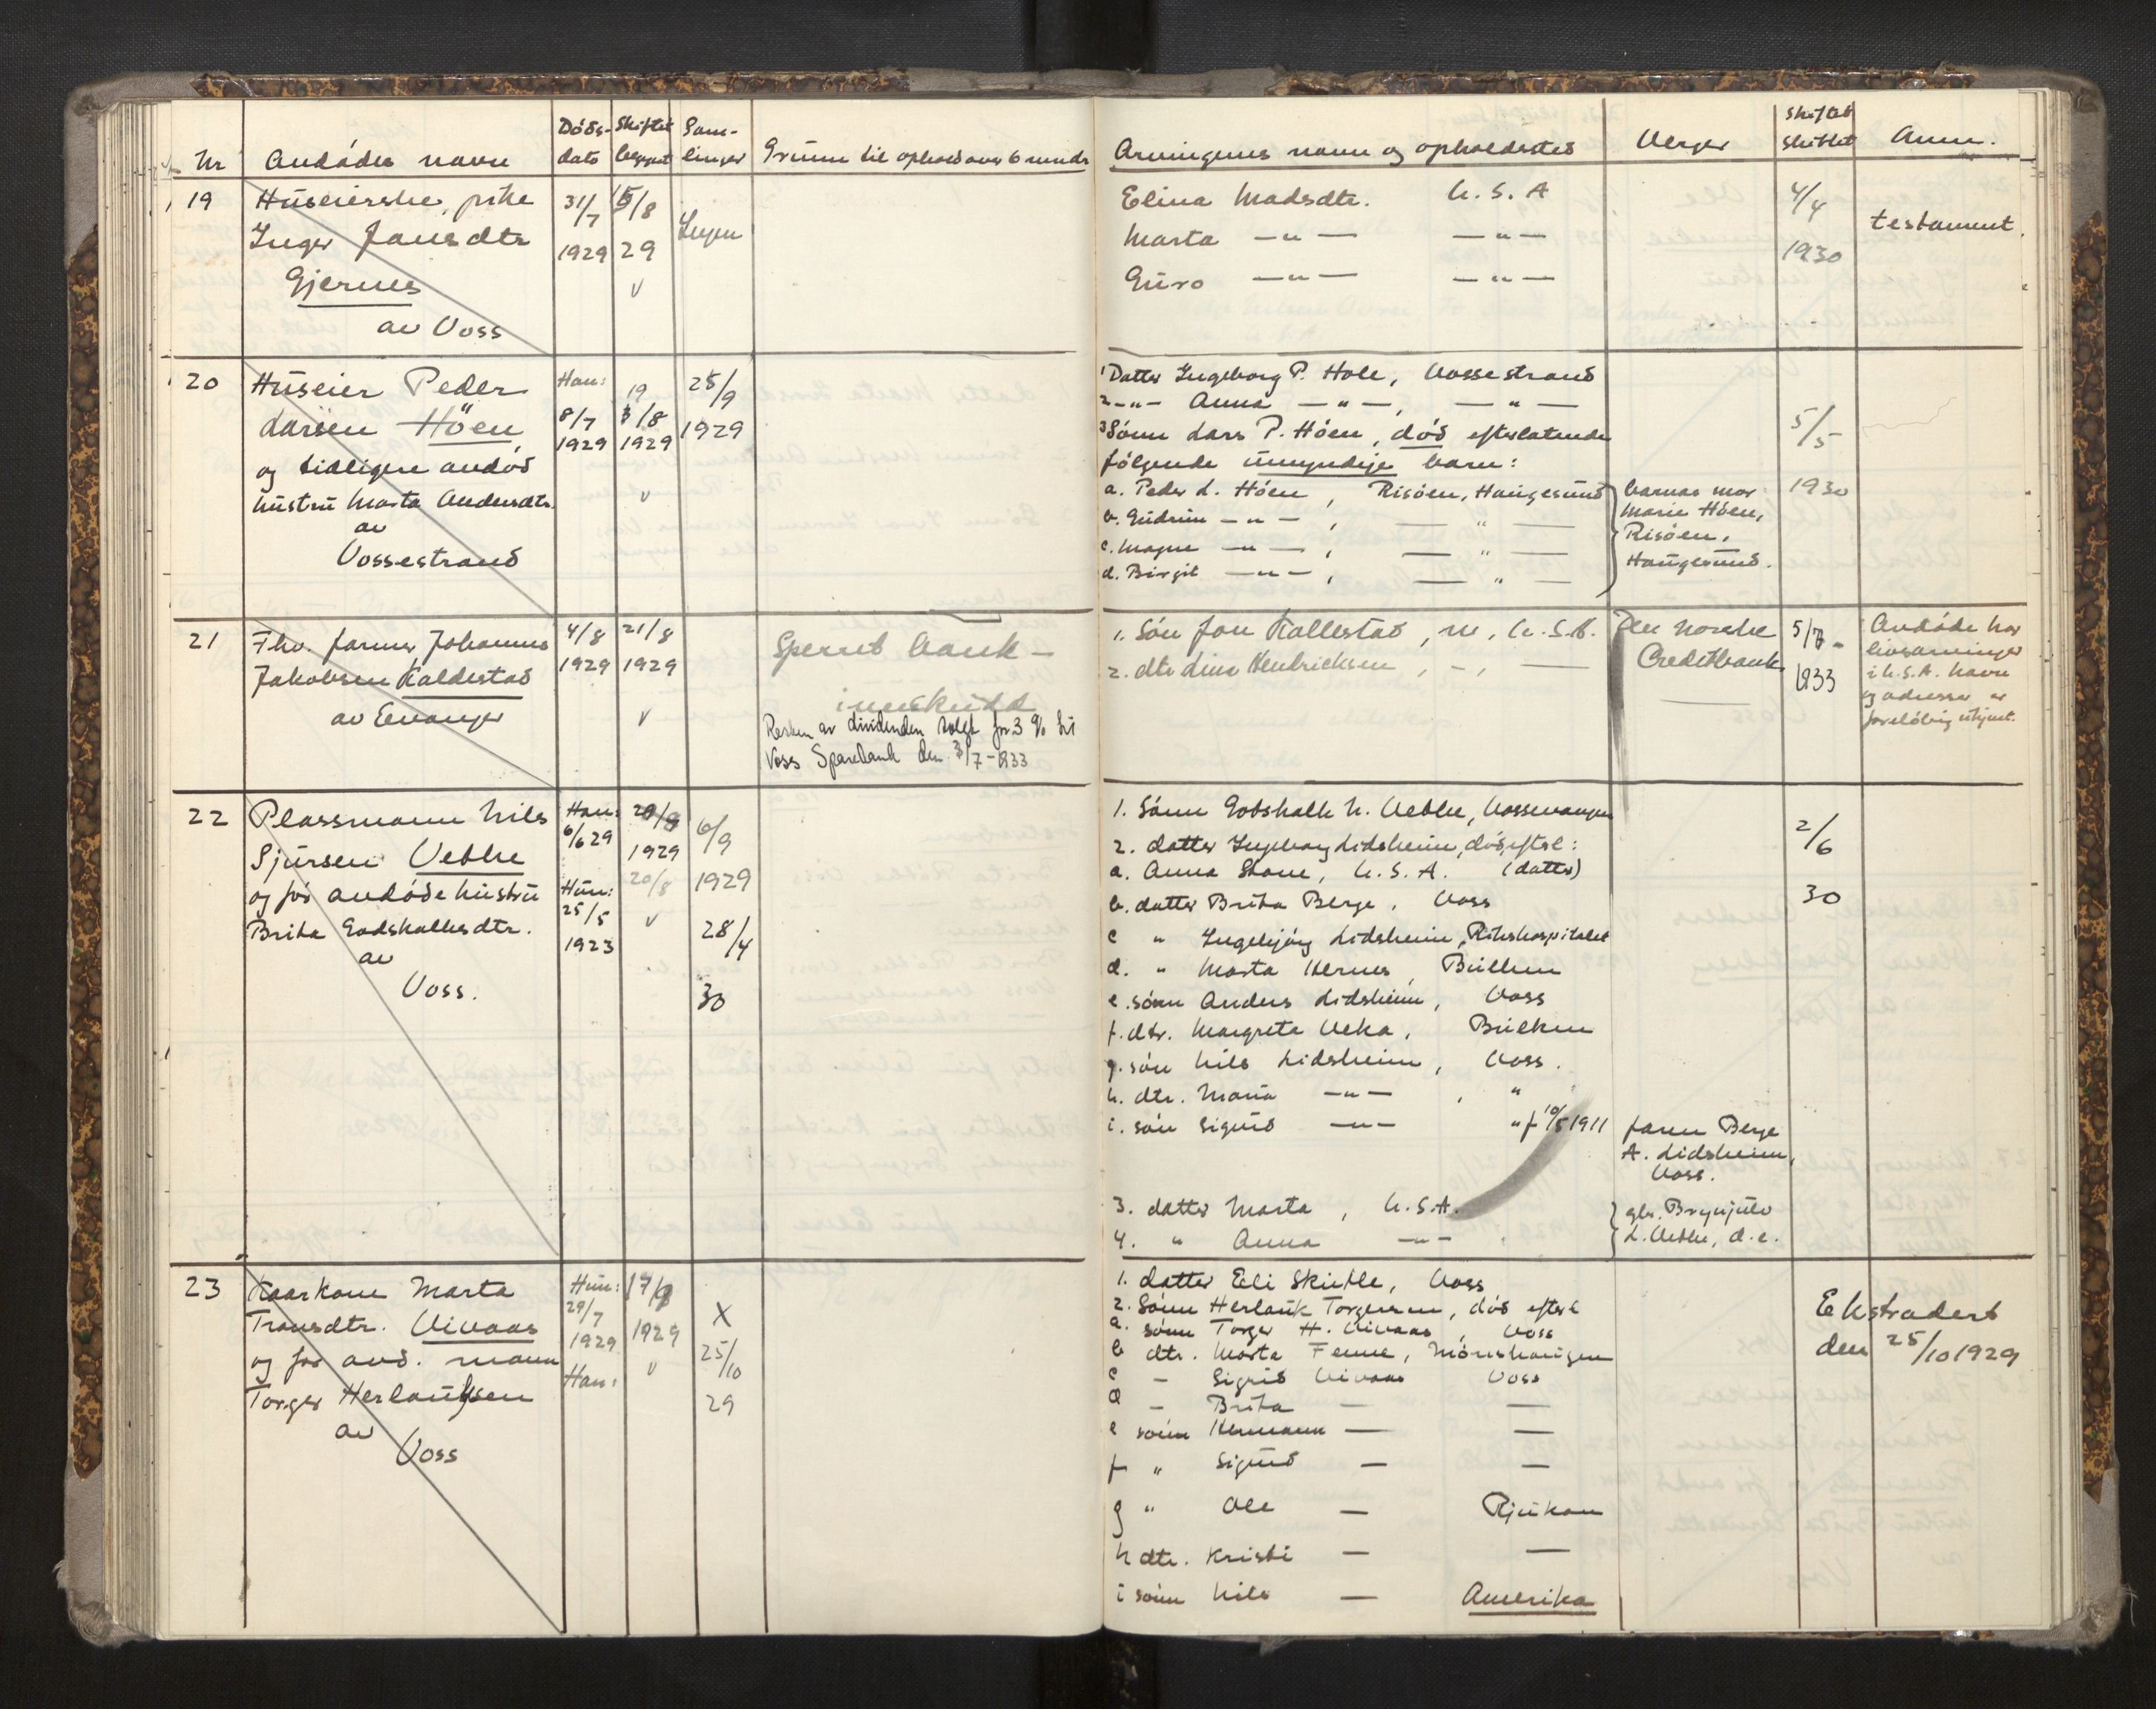 Nr Avdødes navn Døds- dato Skiftet begynt Sam- linger Grunn til ophold over 6 mndr
Arvingenes navn og opholdssted Verger Skiftet sluttet Anm.
19 Huseierske, pike 31/7 15/8 Ingen
Inger Jansdtr 1929 29
Gjernes v
av Voss
Elina Madsdtr. U.S.A 4/4 testament.
Marta —"— —"— 1930
Guro —"— —"—
20 Huseier Peder Han: 19 25/9
Larsen Höen, 8/7 3/8 1929
og tidligere avdød 1929 1929
hustru Marta Andersdtr. v
av
Vossestrand
1 Datter Ingeborg P. Hole, Vossestrand
2 —"— Anna —"—, —"—
3 Sønn Lars P. Höen, død efterlatende 5/5
følgende umyndige barn:
a. Peder L. Höen, Risöen, Haugesund barnas mor 1930
b. Gudrun —"—, —"— Marie Höen,
c. Magne —"—, —"— Risöen,
d. Birgit —"—, —"— Haugesund.
21 Fhv. farmer Johannes 4/8 21/8 Sperret bank-
Jakobsen Kaldestad 1929 1929 innskudd
av Evanger v Resten av dividenden solgt for 3 % til
Voss Sparebank den 3/7-1933
1. Søn Jon Kallestad, m, U.S.A. Den norske 5/7- Avdøde har
2. dtr Lina Hendricksen, -, — Creditbank 1933 livsarvinger
i U.S.A. Navne
og adresse er
foreløbig ukjent.
22 Plassmann Nils Han: 20/8 6/9
Sjursen Uetle 6/6 29 1929 1929
og før avdøde hustru Hun: 20/8
Brita Godskalksdtr. 25/5 v 28/4
av 1923
Voss. 30
1. Sønn Godskalk N. Uetle, Vossevangen
2. datter Ingeborg Lidsheim, død, efterl: 2/6
a. Anna Stone, U.S.A. (datter)
b. datter Brita Berge, Voss 30
c " Ingebjørg Lidsheim, Rikshospitalet
d. " Marta Hernes, Bulken
e. sønn Anders Lidsheim, Voss
f. dtr. Margreta Veka, Bulken
g. søn Nils Lidsheim, Voss.
h. dtr. Maria —"—, "
i. søn Sigurd —"— " f 10/5 1911 faren Berge
A. Lidsheim,
Voss.
3. datter Marta, U.S.A. gbr. Brynjulv
4. " Anna —"— L. Uetle, d.e.
23 Kaarkone Marta Hun: 17/9
Tronsdtr. Vivaas 29/7 x
og før avd. mann 1929 1929 25/10
Torger Herlaugsen Han: v
av 29
Voss
1. datter Eli Skiple, Voss
2. Sønn Herlauk Torgersen, død efterl Ekstradert
a. sønn Torger H. Vivaas, Voss den 25/10 1929
b dtr. Marta Fenne, Mönshaugen
c - Sigrid Vivaas Voss
d - Brita — —
e sønn Hermann — —
f " Sigurd — —
g " Ole — Rjukan
h dtr. Kristi — —
i sønn Nils — Amerika